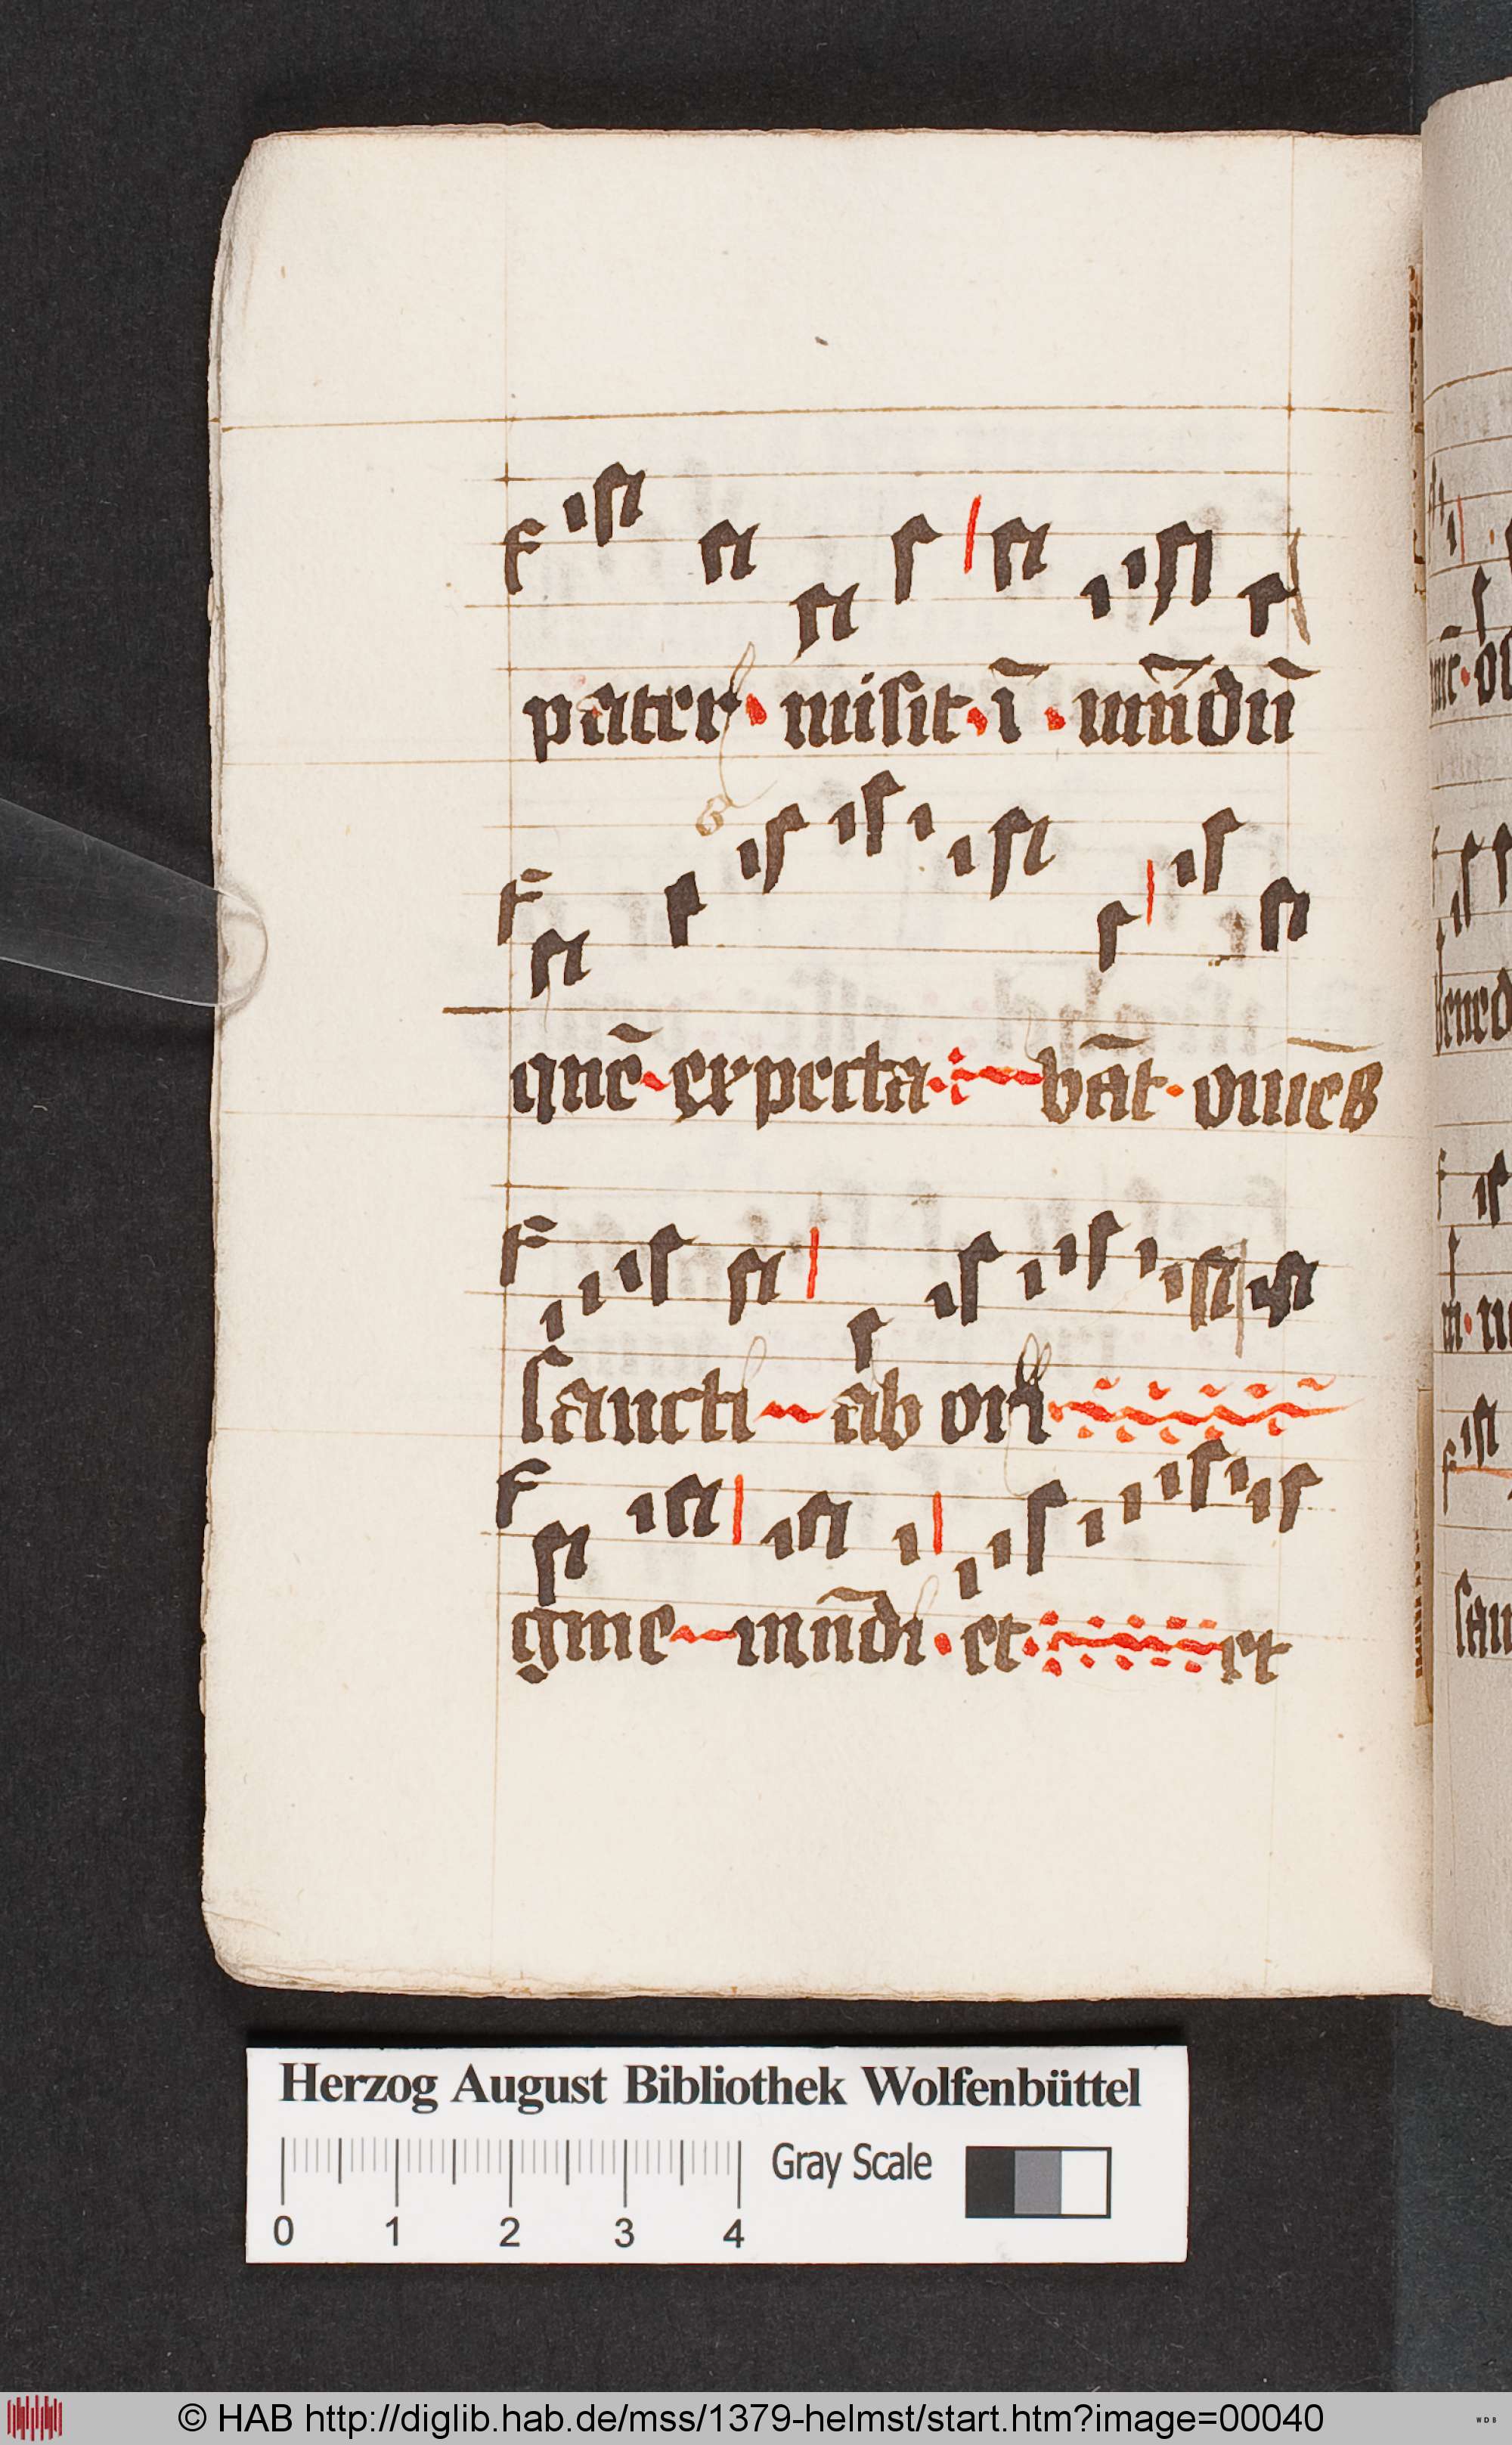 pater · misit · ī · mūndū
quē · expecta bāt · om̄es
sancti ab ori
gine mūndi · et et
Herzog August Bibliothek Wolfenbüttel
0 1 2 3 4
Gray Scale
© HAB http://diglib.hab.de/mss/1379-helmst/start.htm?image=00040